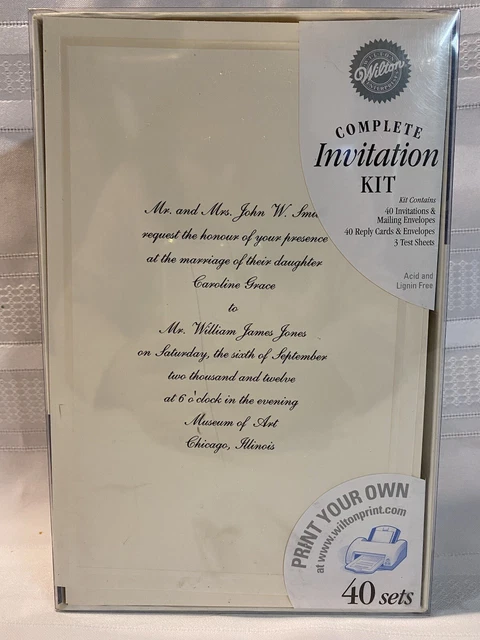 WILTON
Wilton
ENTERPRISES
COMPLETE
Invitation
KIT
Kit Contains
40 Invitations &
Mailing Envelopes
40 Reply Cards & Envelopes
3 Test Sheets
Acid and
Lignin Free
Mr. and Mrs. John W.
request the honour of your presence
at the marriage of their daughter
Caroline Grace
to
Mr. William James Jones
on Saturday, the sixth of September
two thousand and twelve
at 6 o'clock in the evening
Museum of Art
Chicago, Illinois
PRINT YOUR OWN
at www.wiltonprint.com
40 sets